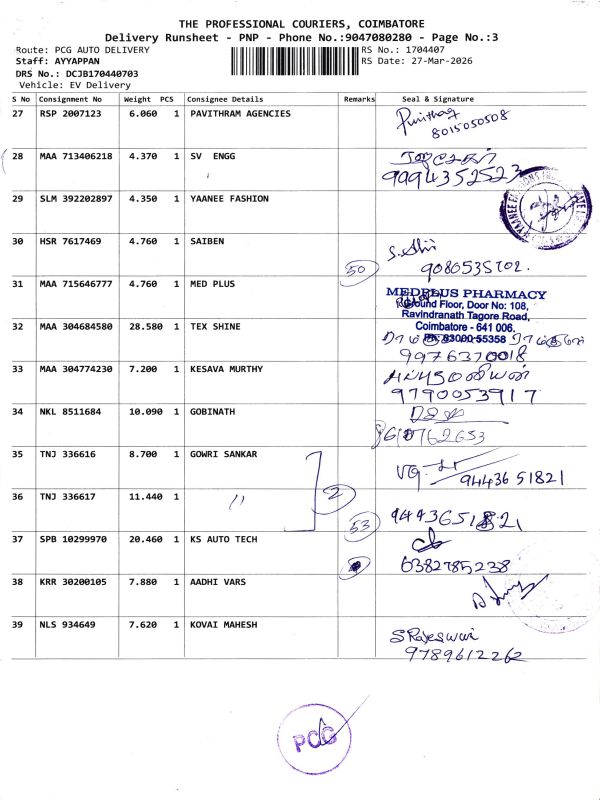 THE PROFESSIONAL COURIERS, COIMBATORE
Delivery Runsheet - PNP - Phone No.:9047080280 - Page No.:3
Route: PCG AUTO DELIVERY
RS No.: 1704407
Staff: AYYAPPAN
RS Date: 27-Mar-2026
DRS No.: DCJB170440703
Vehicle: EV Delivery
S No Consignment No Weight PCS Consignee Details Remarks Seal & Signature
27 RSP 2007123 6.060 1 PAVITHRAM AGENCIES
8015050508
28 MAA 713406218 4.370 1 SV ENGG
9994352523
29 SLM 392202897 4.350 1 YAANEE FASHION
30 HSR 7617469 4.760 1 SAIBEN
50
9080535702.
31 MAA 715646777 4.760 1 MED PLUS
MEDPLUS PHARMACY
Ground Floor, Door No: 108,
Ravindranath Tagore Road,
Coimbatore - 641 006.
Ph: 93000 55358
32 MAA 304684580 28.580 1 TEX SHINE
9976370018
33 MAA 304774230 7.200 1 KESAVA MURTHY
9790053917
34 NKL 8511684 10.090 1 GOBINATH
35 TNJ 336616 8.700 1 GOWRI SANKAR
9443651821
36 TNJ 336617 11.440 1 〃
2
53
37 SPB 10299970 20.460 1 KS AUTO TECH
6382785238
38 KRR 30200105 7.880 1 AADHI VARS
39 NLS 934649 7.620 1 KOVAI MAHESH
S Rajeswari
9789612262
PCG